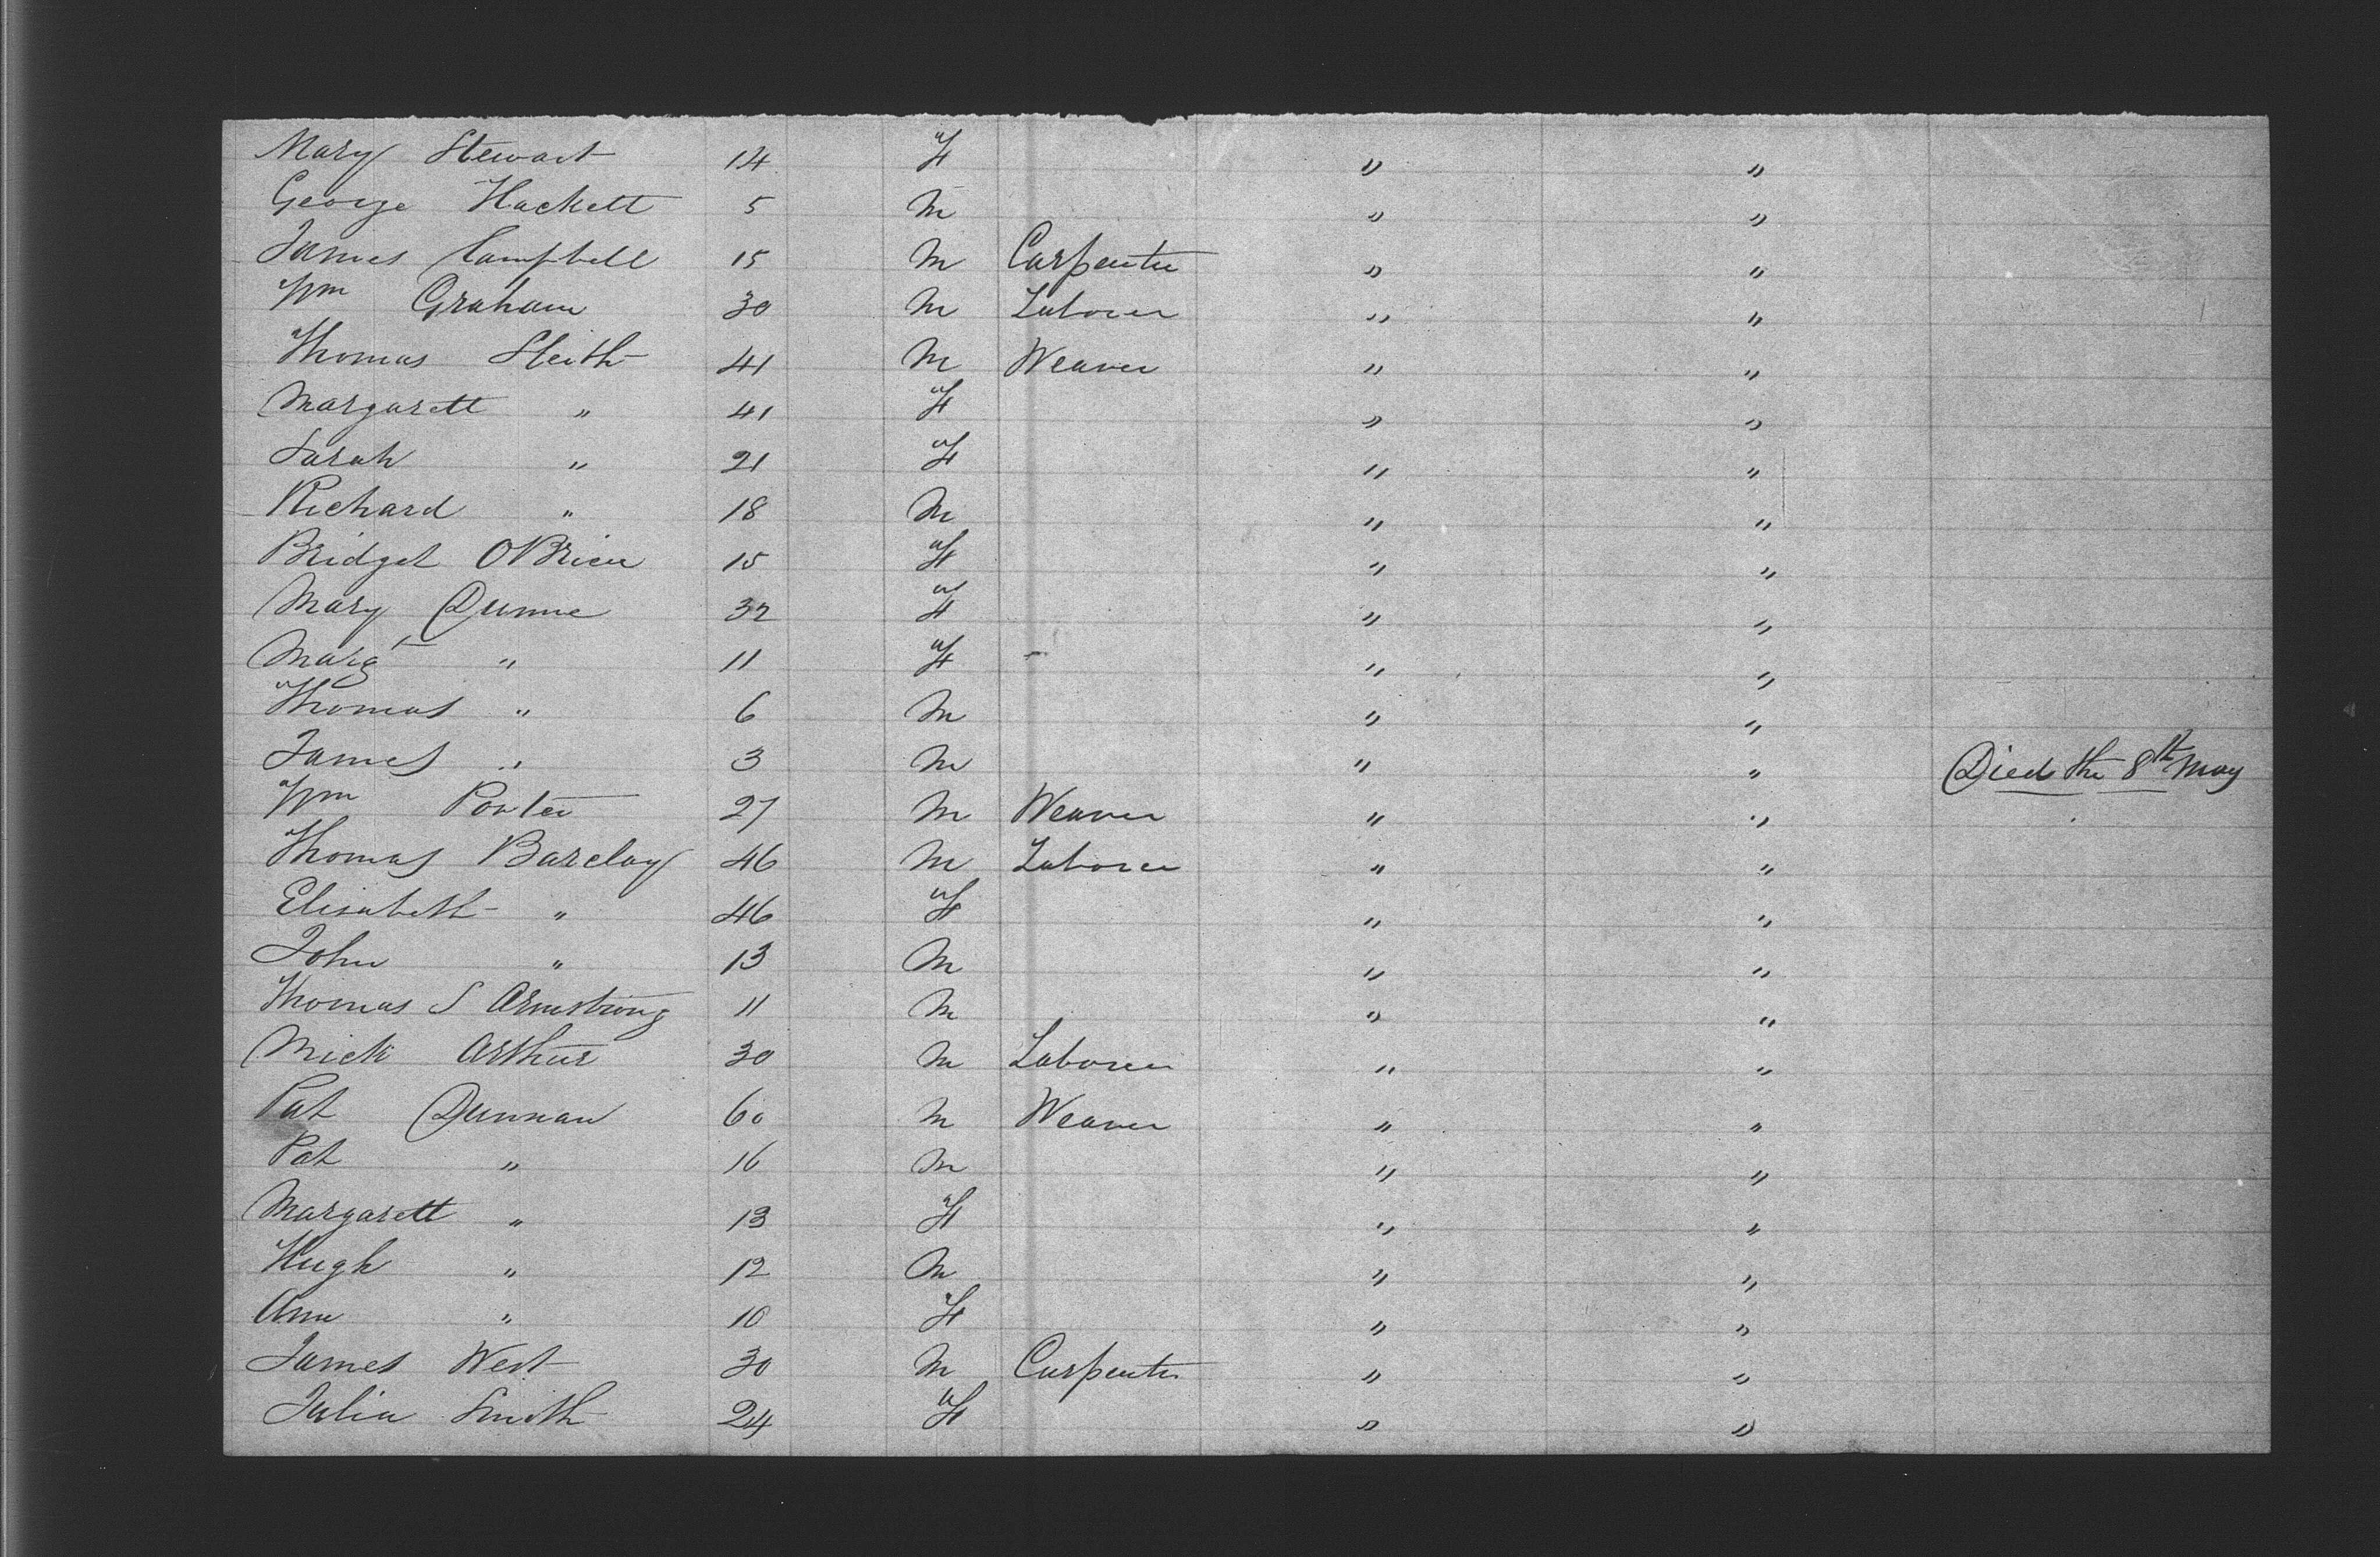 Mary Stewart 14 F " "
George Hackett 5 M " "
James Campbell 15 M Carpenter " "
Wm Graham 30 M Laborer " "
Thomas Steith 41 M Weaver " "
Margarett " 41 F " "
Sarah " 21 F " "
Richard " 18 M " "
Bridget OBrien 15 F " "
Mary Dunne 32 F " "
Margt " 11 F " "
Thomas " 6 M " "
James " 3 M " " Died the 8th May
Wm Porter 27 M Weaver " "
Thomas Barclay 46 M Laborer " "
Elisabeth " 46 F " "
John " 13 M " "
Thomas S Armstrong 11 M " "
Mick Arthur 30 M Laborer " "
Pat Dunnan 60 M Weaver " "
Pat " 16 M " "
Margarett " 13 F " "
Hugh " 12 M " "
Ann " 10 F " "
James West 30 M Carpenter " "
Julia Smith 24 F " "